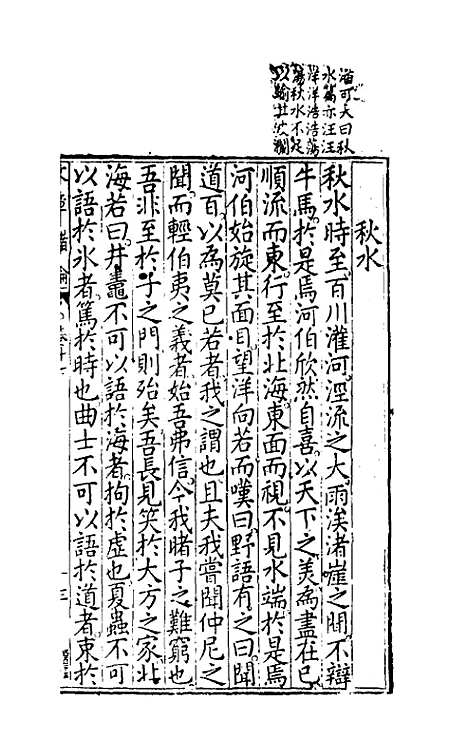 潘可大曰秋
水篇亦汪汪
洋洋浩浩蕩
蕩秋水不足
以喻其大觀
秋水
秋水時至百川灌河涇流之大兩涘渚崖之間不辯
牛馬於是焉河伯欣然自喜以天下之美為盡在己
順流而東行至於北海東面而視不見水端於是焉
河伯始旋其面目望洋向若而嘆曰野語有之曰聞
道百以為莫已若者我之謂也且夫我嘗聞仲尼之
聞而輕伯夷之義者始吾弗信今我睹子之難窮也
吾非至於子之門則殆矣吾長見笑於大方之家北
海若曰井鼃不可以語於海者拘於虛也夏蟲不可
以語於氷者篤於時也曲士不可以語於道者束於